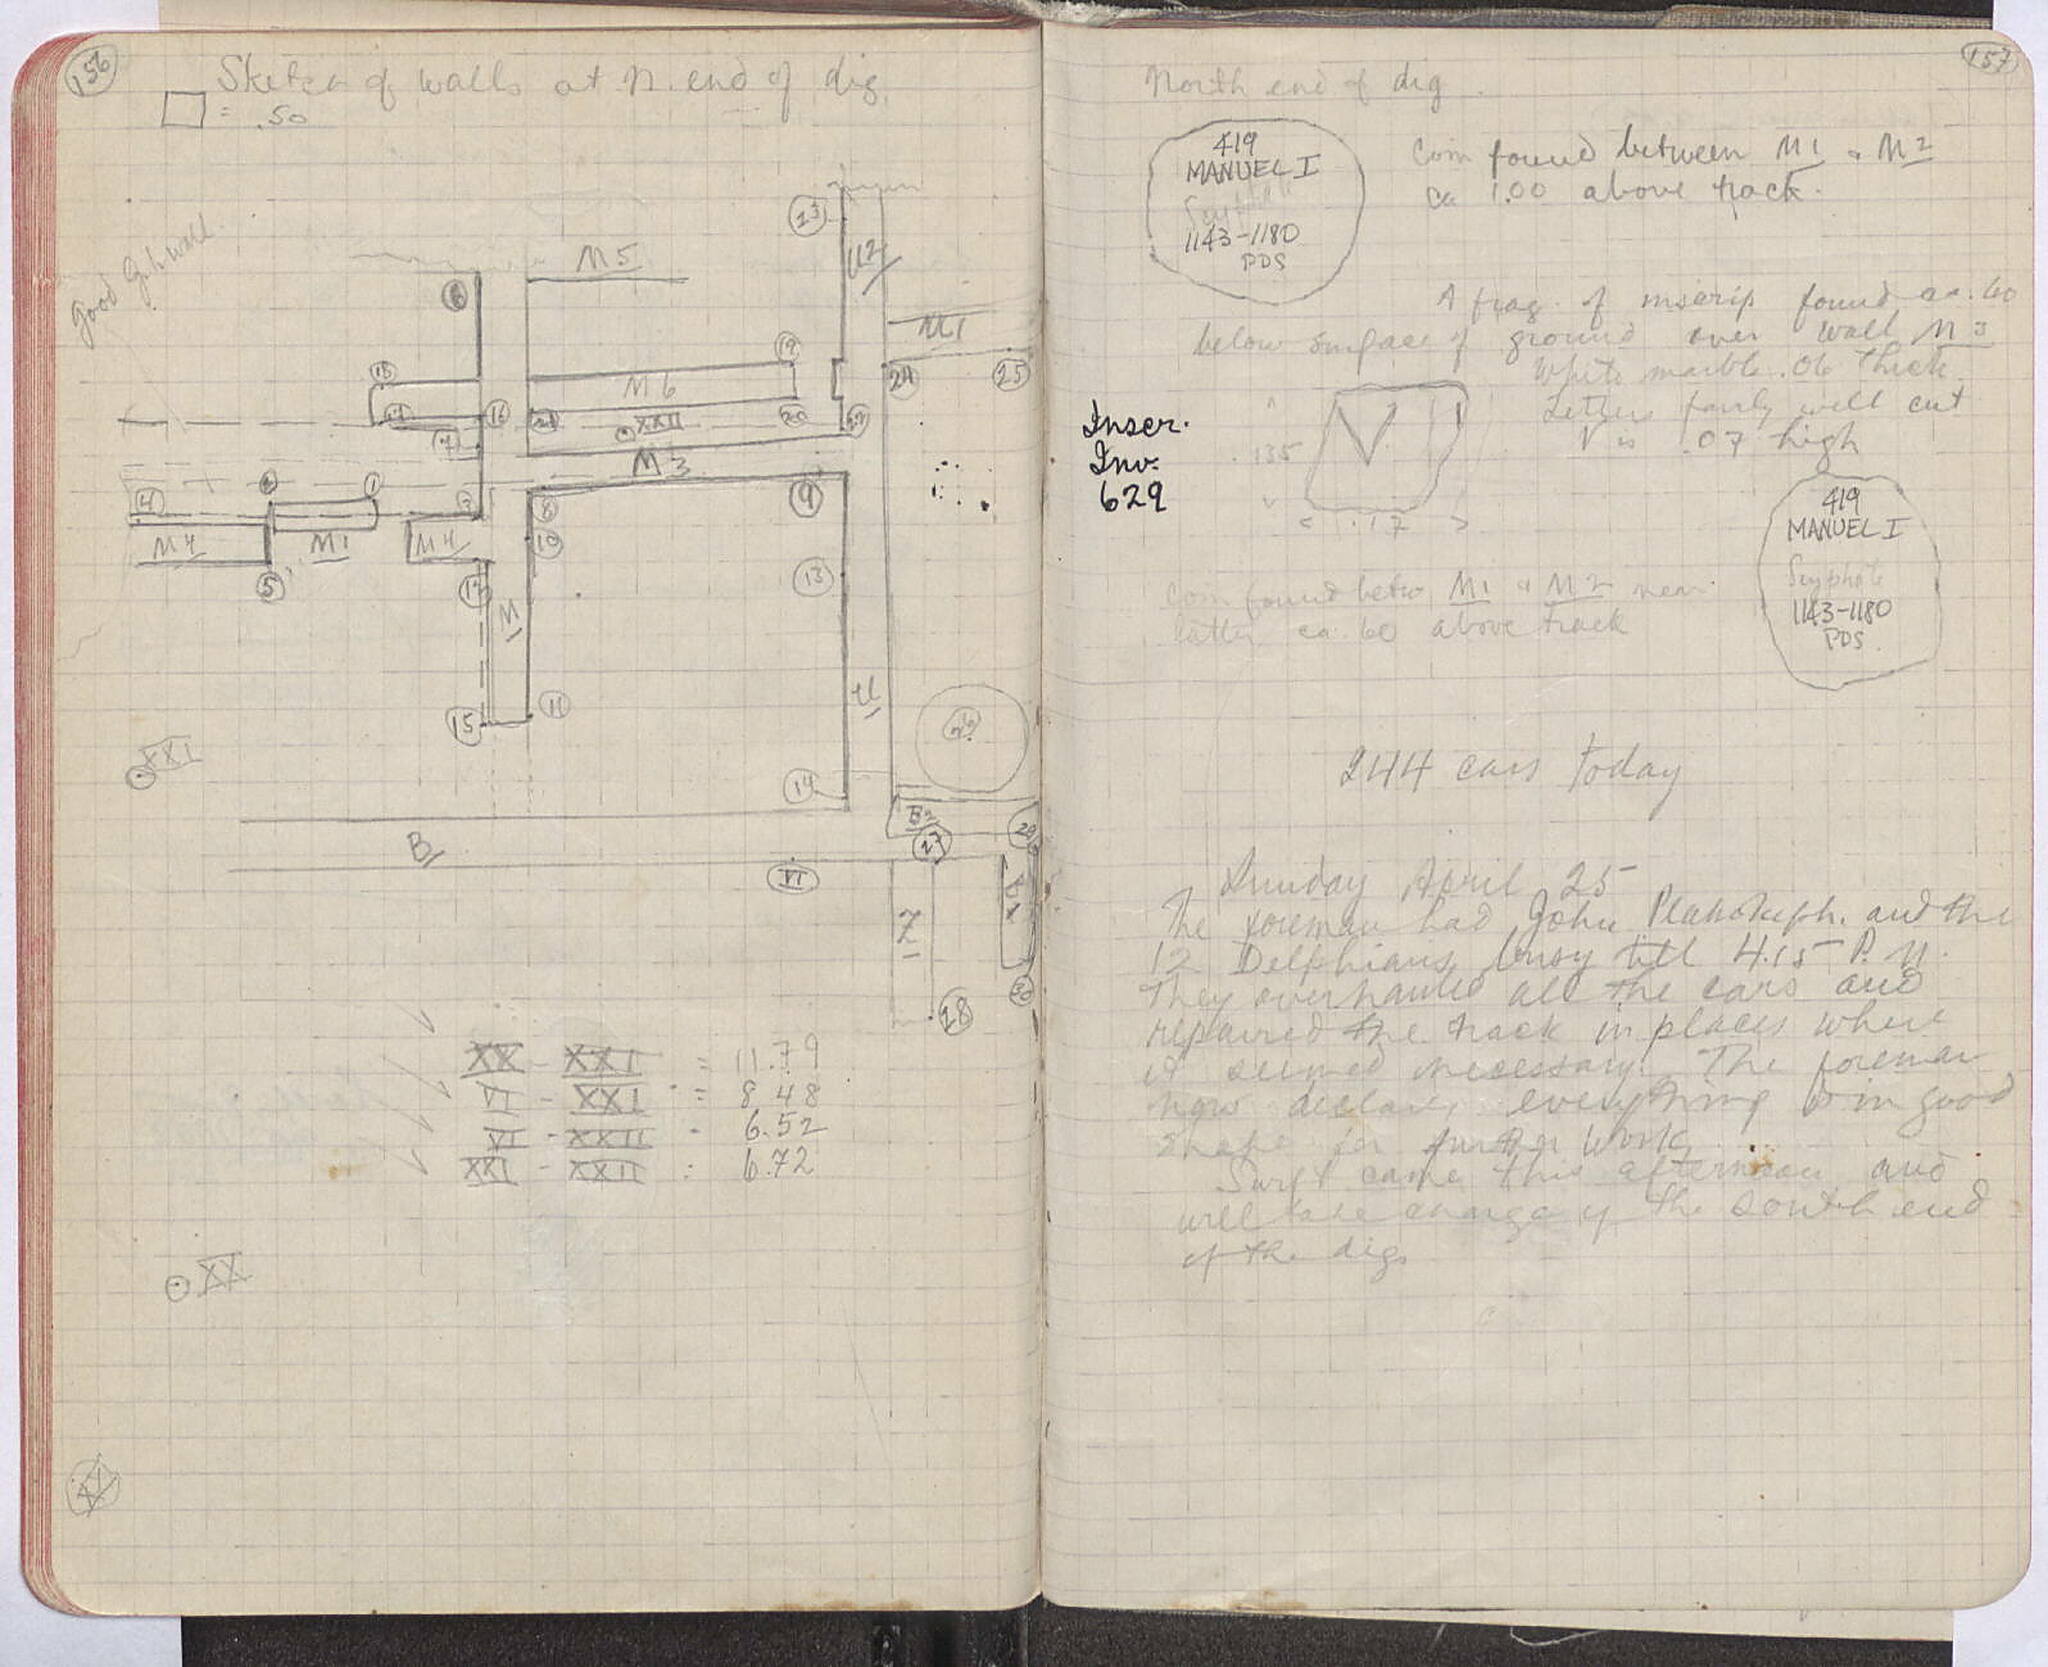 156
Sketch of walls at N. end of dig.
= .50
23
M5
U2
M1
18
19
M6
24
25
16
20
XXII
M3
4
1
8
9
M4
M1
M4
10
5
12
13
M
U
15
11
26
XXI
14
B
B2
27
VI
Z
28
30
XX - XXI = 11.79
VI - XXI = 8 48
VI - XXII = 6.52
XXI - XXII = 6.72
XX
157
North end of dig
419
MANUEL I
1143-1180
PDS
Coin found between M1 & M2
ca 1.00 above track.
A frag. of inscrip found ca .60
below surface of ground over wall M3
White marble .06 thick
Letters fairly well cut
V is .07 high
Inscr.
Inv.
629
V
.135
.17
419
MANUEL I
Scyphate
1143-1180
PDS.
Coin found betw. M1 & M2 near
latter ca .60 above track
244 cars today
Sunday April 25
The foreman had John and the
12 Delphians busy till 4.15 P.M.
They overhauled all the cars and
repaired the track in places where
it seemed necessary. The foreman
now declares everything is in good
shape for further work.
Swift came this afternoon and
will take charge of the south end
of the dig.